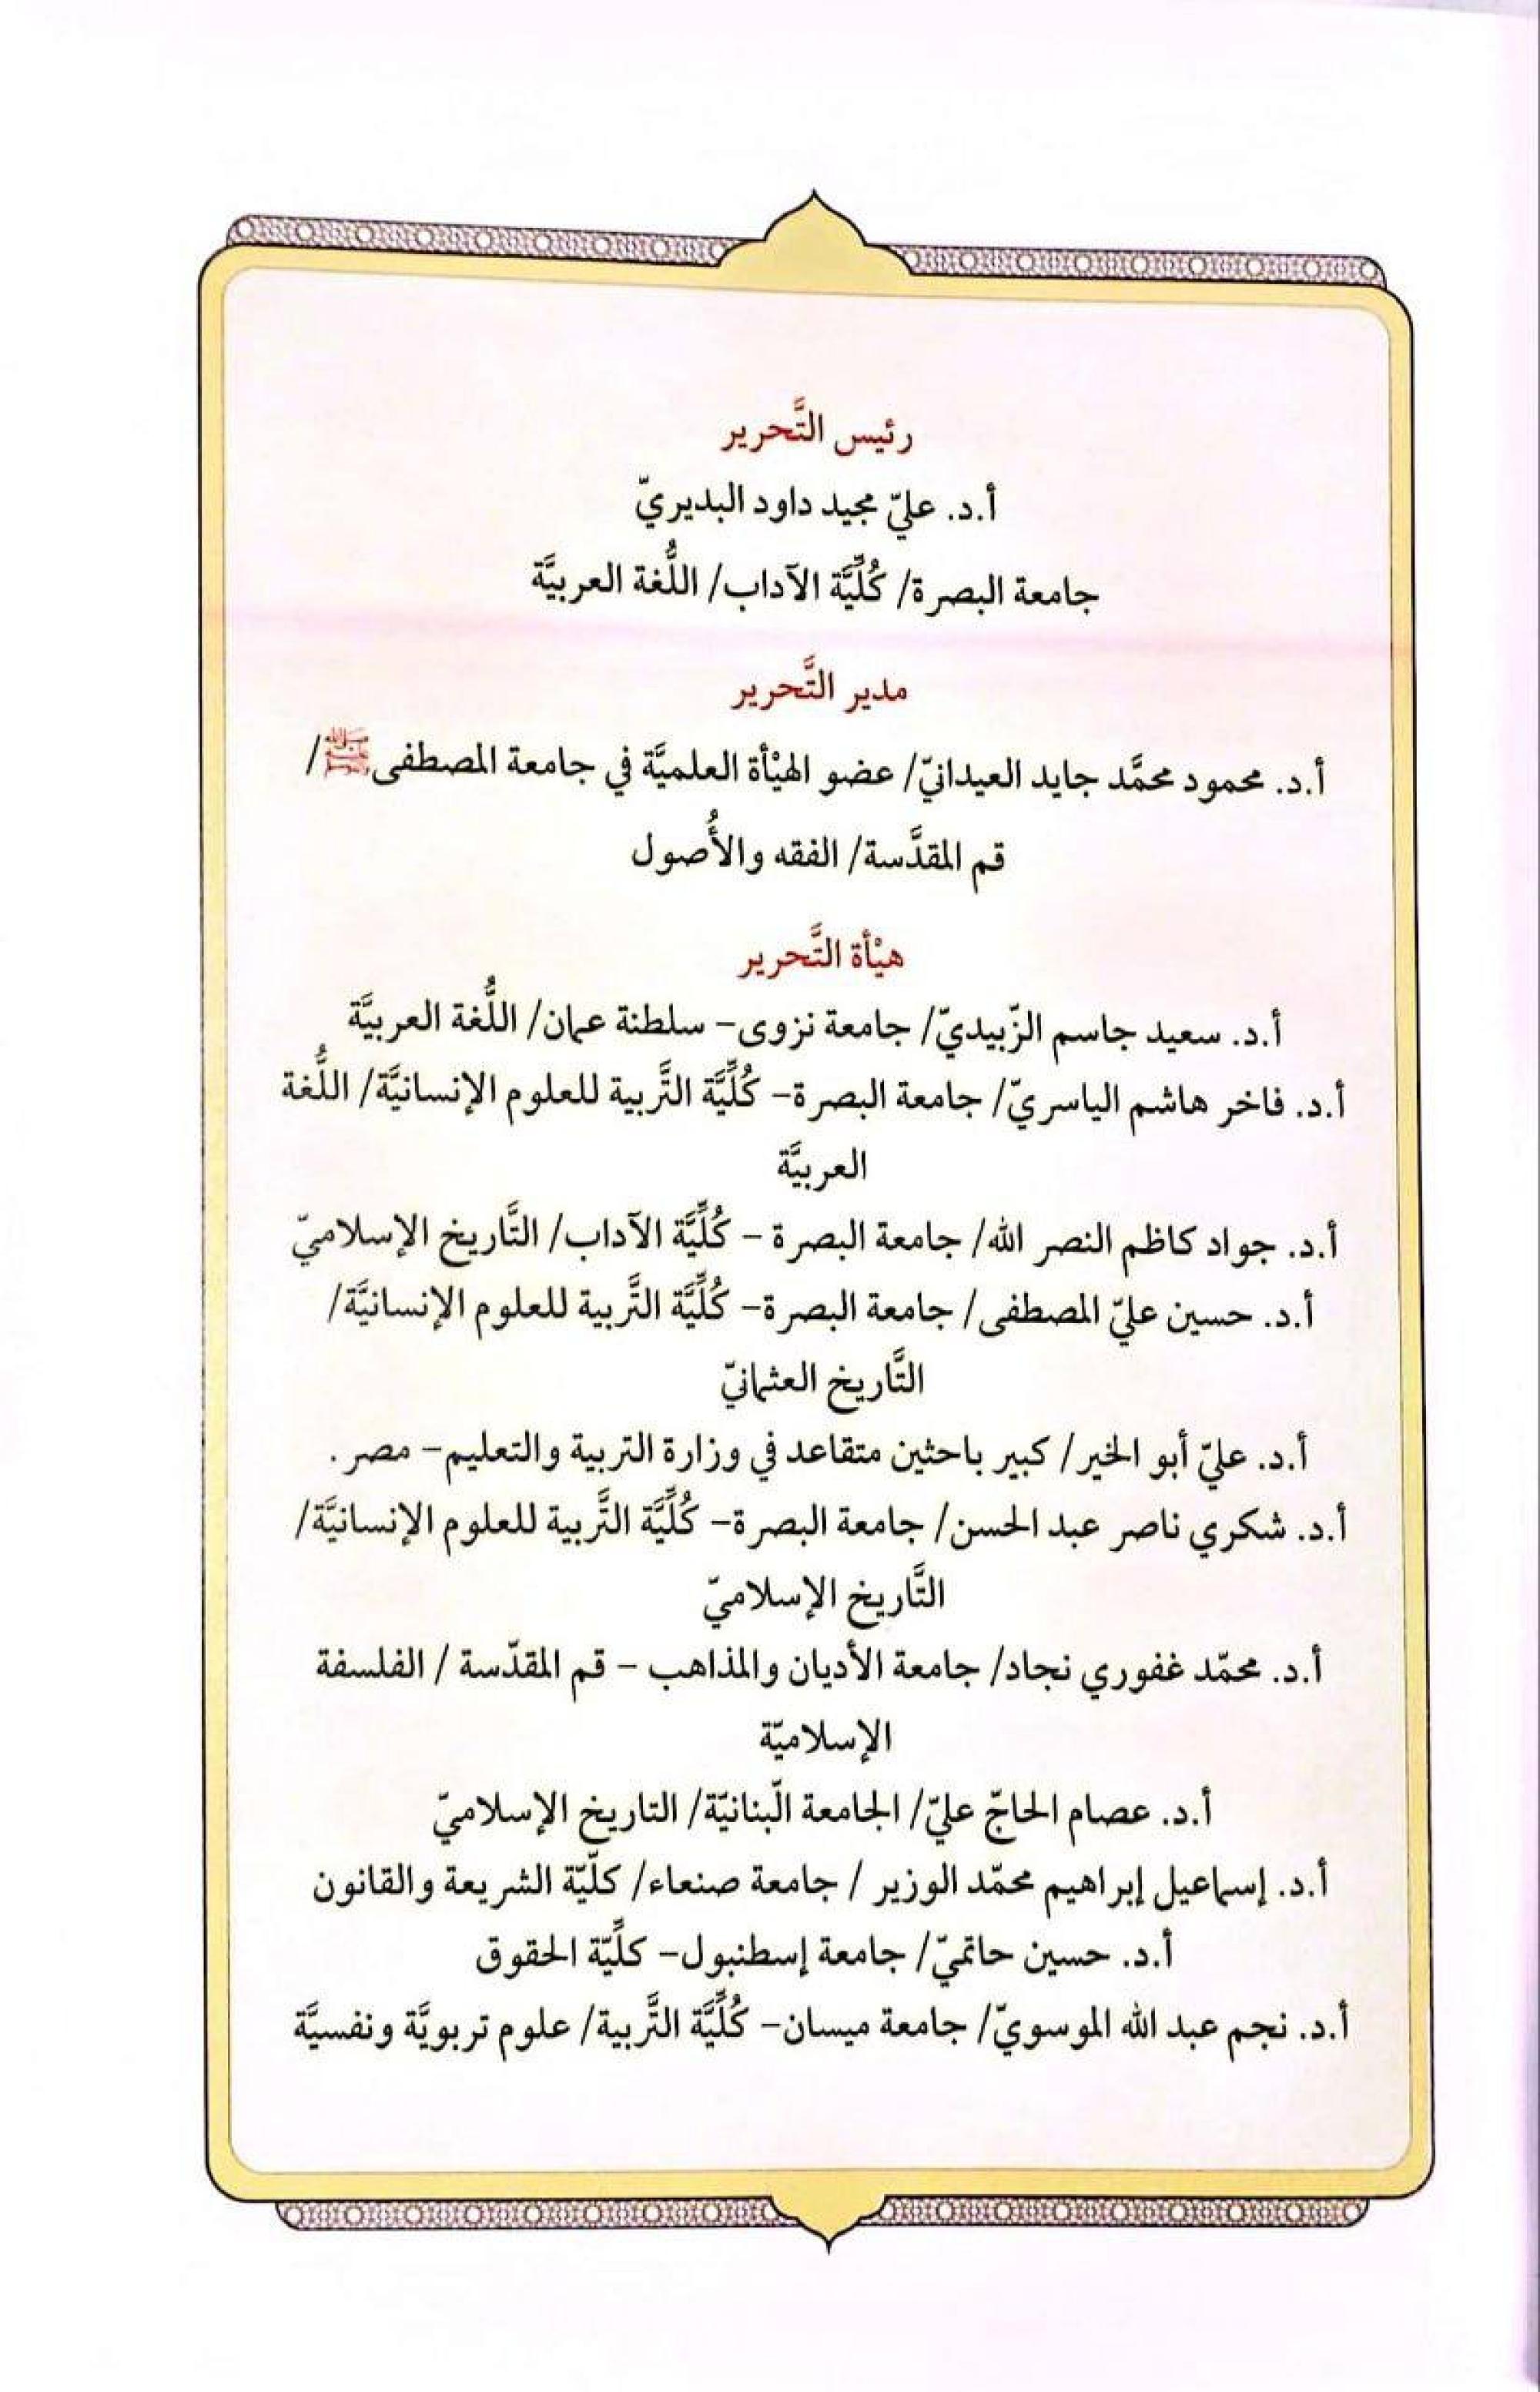 رئيس التَّحرير
أ.د. عليّ مجيد داود البديريّ
جامعة البصرة/ كُلِّيَّة الآداب/ اللُّغة العربيَّة
مدير التَّحرير
أ.د. محمود محمَّد جايد العيدانيّ/ عضو الهيْأة العلميَّة في جامعة المصطفىﷺ/
قم المقدَّسة/ الفقه والأُصول
هيْأة التَّحرير
أ.د. سعيد جاسم الزّبيديّ/ جامعة نزوى- سلطنة عمان/ اللُّغة العربيَّة
أ.د. فاخر هاشم الياسريّ/ جامعة البصرة- كُلِّيَّة التَّربية للعلوم الإنسانيَّة/ اللُّغة
العربيَّة
أ.د. جواد كاظم النصر الله/ جامعة البصرة - كُلِّيَّة الآداب/ التَّاريخ الإسلاميّ
أ.د. حسين عليّ المصطفى/ جامعة البصرة- كُلِّيَّة التَّربية للعلوم الإنسانيَّة/
التَّاريخ العثمانيّ
أ.د. عليّ أبو الخير/ كبير باحثين متقاعد في وزارة التربية والتعليم- مصر.
أ.د. شكري ناصر عبد الحسن/ جامعة البصرة- كُلِّيَّة التَّربية للعلوم الإنسانيَّة/
التَّاريخ الإسلاميّ
أ.د. محمّد غفوري نجاد/ جامعة الأديان والمذاهب - قم المقدّسة / الفلسفة
الإسلاميّة
أ.د. عصام الحاجّ عليّ/ الجامعة الّبنانيّة/ التاريخ الإسلاميّ
أ.د. إسماعيل إبراهيم محمّد الوزير / جامعة صنعاء/ كلّيّة الشريعة والقانون
أ.د. حسين حاتميّ/ جامعة إسطنبول- كلِّيّة الحقوق
أ.د. نجم عبد الله الموسويّ/ جامعة ميسان- كُلِّيَّة التَّربية/ علوم تربويَّة ونفسيَّة